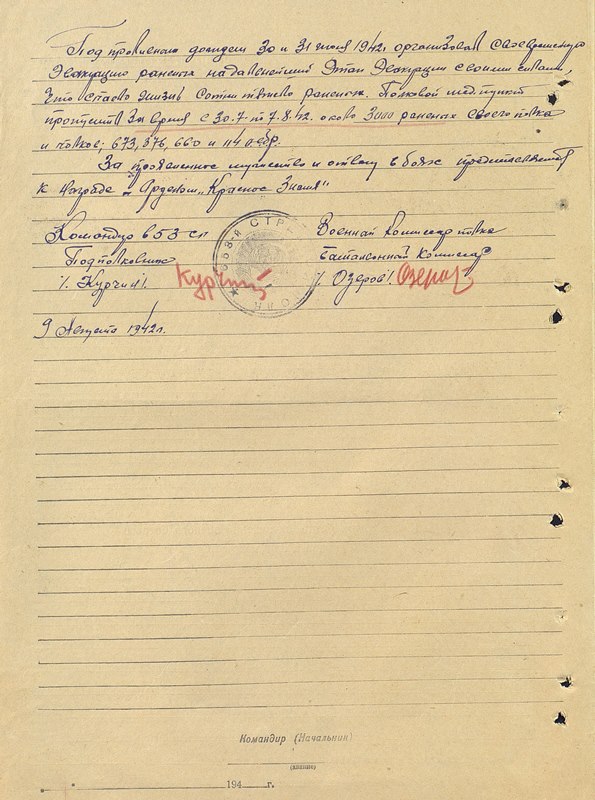 Под проливным дождем 30 и 31 июля 1942г. организовал своевременную
эвакуацию раненых на дальнейший этап эвакуации своими силами,
что спасло жизнь сотни тяжело раненых. Полковой медпункт
пропустил за время с 30.7. по 7.8.42. около 3000 раненых своего полка
и полков; 673, 376, 660 и 114 осбр.
За проявленное мужество и отвагу в боях представляется
к награде – Орденом „Красное Знамя"
Командир 653 сп
Военный Комиссар полка
Подполковник
Батальонный Комиссар
/. Курчин /.
Курчин
/. Озеров /.
Озеров
9 Августа 1942г.
Командир (Начальник)
(звание)
194 г.